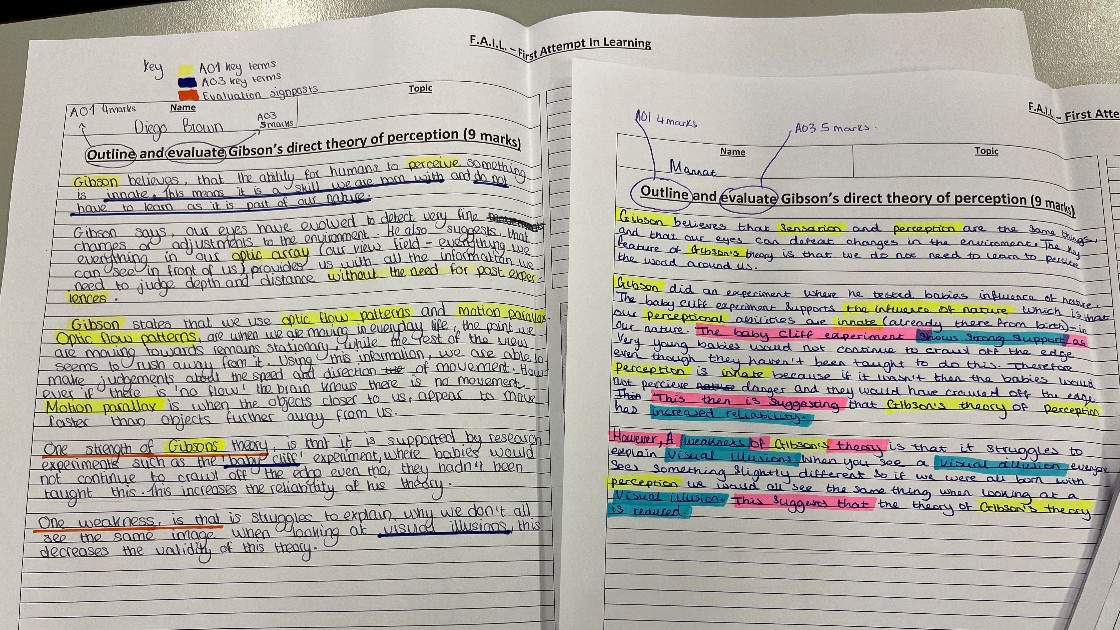 F.A.I.L. – First Attempt In Learning
key
AO1 key terms
AO3 key terms
Evaluation signposts
AO1 4marks
Name
Topic
Diego Brown
AO3
5marks
Outline and evaluate Gibson's direct theory of perception (9 marks)
Gibson believes, that the ability for humans to perceive something
is innate. This means it is a skill we are born with and do not
have to learn as it is part of our nature.
Gibson says, our eyes have evolved to detect very fine
changes or adjustments to the environment. He also suggests that
everything in our optic array (our view field - everything we
can see in front of us) provides us with all the information we
need to judge depth and distance without the need for past exper-
iences.
Gibson states that we use optic flow patterns and motion parallax.
Optic flow patterns, are when we are moving in everyday life, the point we
are moving towards remains stationary, while the rest of the view
seems to rush away from it. Using this information, we are able to
make judgements about the speed and direction of movement. How-
ever if there is 'no flow' the brain knows there is no movement.
Motion parallax is when the objects closer to us, appear to move
faster than objects further away from us.
One strength of Gibsons theory, is that it is supported by research
experiments such as the 'baby cliff' experiment, where babies would
not continue to crawl off the edge even tho, they hadn't been
taught this. This increases the reliability of his theory.
One weakness, is that is struggles to explain, why we don't all
see the same image when looking at visual illusions, this
decreases the validity of this theory.
F.A.I.L. – First Atte
AO1 4marks
AO3 5 marks.
Name
Topic
Mannat
Outline and evaluate Gibson's direct theory of perception (9 marks)
Gibson believes that sensation and perception are the same things
and that our eyes can detect changes in the enviroment. The key
feature of Gibson's theory is that we do not need to learn to percieve
the world around us.
Gibson did an experiment where he tested babies influence of nature.
The baby cliff experiment supports the influence of nature which is that
our perceptional abilities are innate (already there from birth)-in
our nature. The baby cliff experiment shows strong support as
Very young babies would not continue to crawl off the edge
even though they haven't been taught to do this. Therefore
perception is innate because if it wasn't then the babies would
not percieve danger and they would have crawled off the edge.
This then is suggesting that Gibson's theory of perception
has increased reliability.
However, A weakness of Gibson's theory is that it struggles to
explain visual illusions. When you see a visual illusion everyone
sees something slightly different so if we were all born with
perception we would all see the same thing when looking at a
visual illusion. This suggests that the theory of Gibson's theory
is reduced.